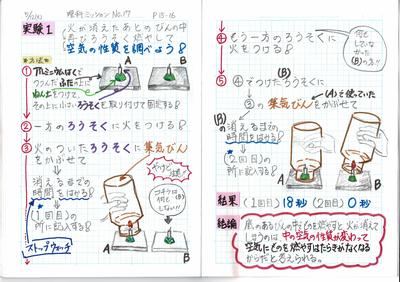 理科ミッション No.17 P15-16
実験1 (火が消えたあとのびんの中で
再びろうそく燃やして
空気の性質を調べよう8
方法
① アルミニウムはくで
つつんだふたに
ねん土をつけて、
その上に小さいろうそくを取り付けて固定する8
A
B
② 一方のろうそくに火をつける8
③ 火のついたろうそくに集気びん
をかぶせて
消えるまでの
時間をはかる8
(1回目)の
所に記入する8
ストップウォッチ
やけど
注意
コチラは
何も
しない!!
(B)
A
B
④ もう一方のろうそくに
火をつける8
何も
していな
かった
(B)の方!!
⑤ ④でつけたろうそくに
(B)
③の集気びんをかぶせて
(A)で使っていた
(B)の
消えるまでの
時間をはかる8
(2回目)の
所に記入する8
A
B
結果 (1回目) 18秒 (2回目) 0秒
結論
しまうのは、中の空気の性質が変わって
空気にものを燃やすはたらきがなくなる
からだと考えられる。